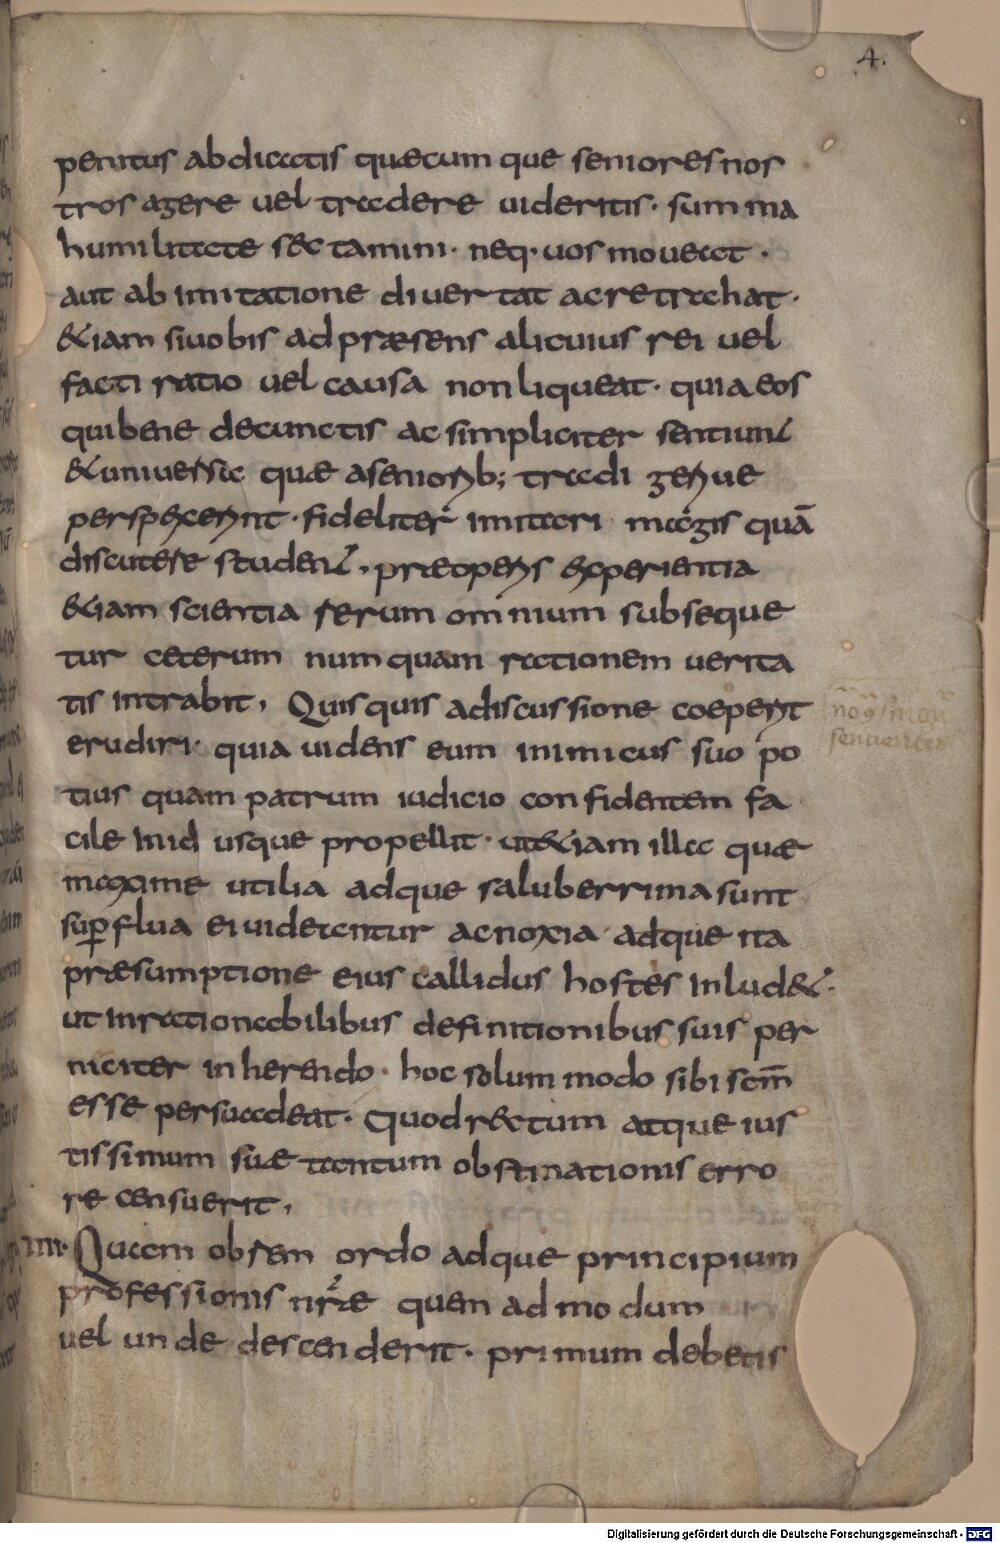 4.
penitus abdicatis quæcumque seniores nos
tros agere vel tradere videritis. summa
humilitate sectamini. neq· vos moveat.
aut ab imitatione divertat ac retrahat.
&iam si vobis ad præsens alicuius rei vel
facti ratio vel causa non liqueat. quia eos
qui bene de cunctis ac simpliciter sentiunt
& universa quæ a seniorib; tradi gerive
perspexerint. fideliter imitari magis quā
discutere student. præ operis experientia
&iam scientia rerum omnium subseque
tur ceterum numquam rationem verita
tis intrabit, Quisquis a discussione coeperit
erudiri. quia videns eum inimicus suo po
tius quam patrum iudicio confidentem fa
cile in id usque propellit. ut&iam illa quæ
maxime utilia adque saluberrima sunt
suꝑflua ei videantur ac noxia adque ita
præsumptione eius callidus hostes inlud&.
ut inrationabilibus definitionibus suis per
niciter inherendo. hoc solummodo sibi scm̄
esse persuadeat. quod r&ctum atque ius
tissimum suæ tantum obstinationis erro
re censuerit,
IIII. Quam ob rem ordo adque principium
professionis nr̄æ quem ad modum
vel unde descenderit. primum debetis
Digitalisierung gefördert durch die Deutsche Forschungsgemeinschaft - DFG